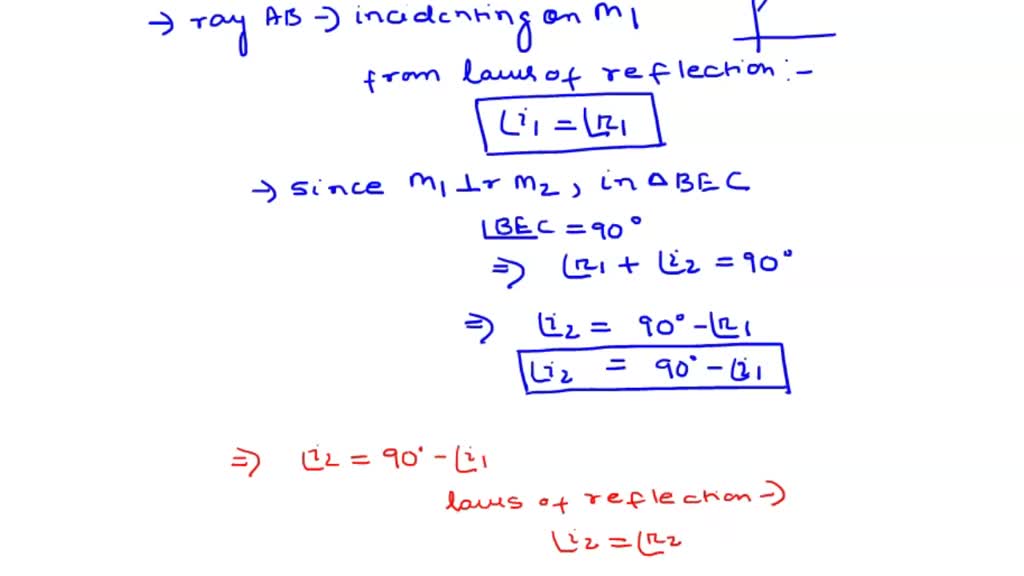 → ray AB → incidenting on m1
from laws of reflection :-
∠i1 = ∠r1
→ since m1 ⊥r m2, in △BEC
∠BEC = 90°
⇒ ∠r1 + ∠i2 = 90°
⇒ ∠i2 = 90° - ∠r1
∠i2 = 90° - ∠i1
⇒ ∠i2 = 90° - ∠i1
laws of reflection →
∠i2 = ∠r2